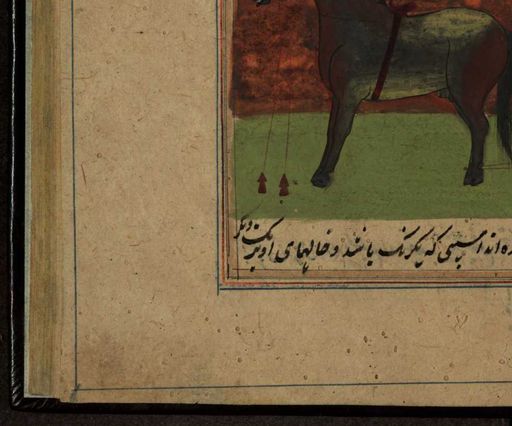 ه اند اسپی که یکرنگ باشد و خالهای او برنگ دیگر